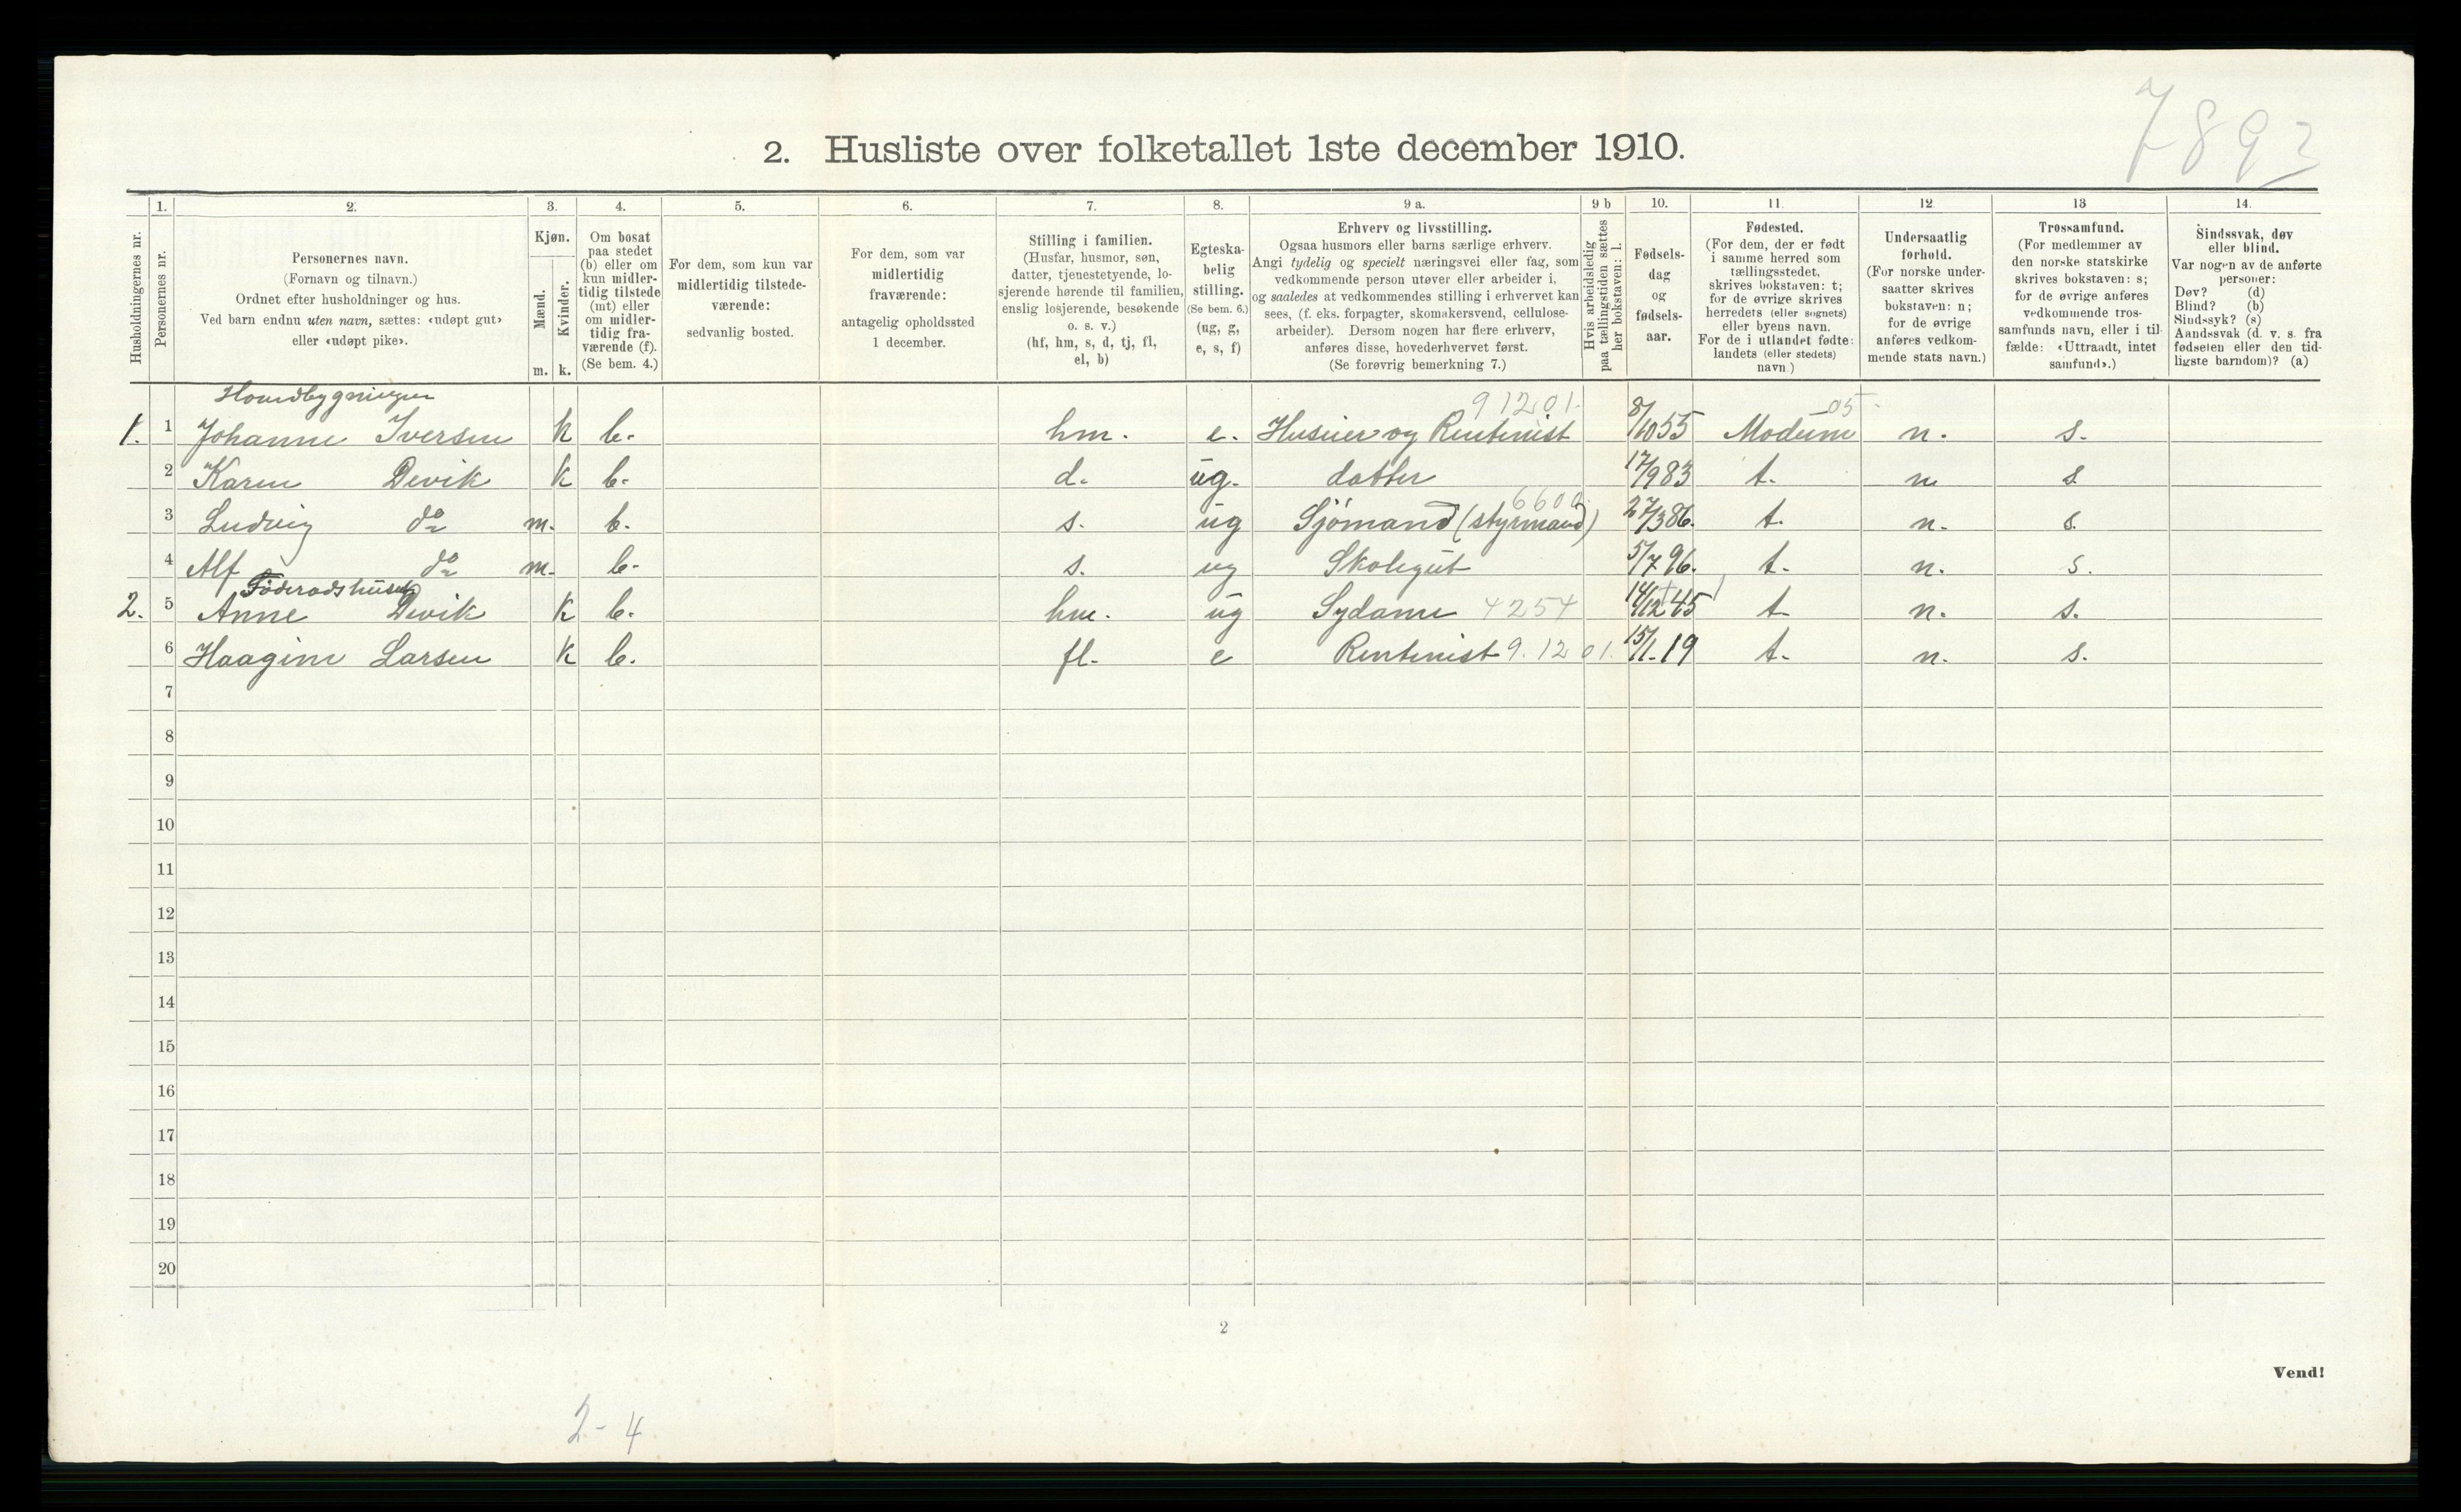 7892
2. Husliste over folketallet 1ste december 1910.
Husholdningernes nr.
1.
Personernes nr.
2.
Personernes navn.
(Fornavn og tilnavn.)
Ordnet efter husholdninger og hus.
Ved barn endnu uten navn, sættes: «udøpt gut»
eller «udøpt pike».
3.
Kjøn.
Mænd.
Kvinder.
m. k.
4.
Om bosat
paa stedet
(b) eller om
kun midler-
tidig tilstede
(mt) eller
om midler-
tidig fra-
værende (f).
(Se bem. 4.)
5.
For dem, som kun var
midlertidig tilstede-
værende:
sedvanlig bosted.
6.
For dem, som var
midlertidig
fraværende:
antagelig opholdssted
1 december.
7.
Stilling i familien.
(Husfar, husmor, søn,
datter, tjenestetyende, lo-
sjerende hørende til familien,
enslig losjerende, besøkende
o. s. v.)
(hf, hm, s, d, tj, fl,
el, b)
8.
Egteska-
belig
stilling.
(Se bem. 6.)
(ug, g,
e, s, f)
9 a.
Erhverv og livsstilling.
Ogsaa husmors eller barns særlige erhverv.
Angi tydelig og specielt næringsvei eller fag, som
vedkommende person utøver eller arbeider i,
og saaledes at vedkommendes stilling i erhvervet kan
sees, (f. eks. forpagter, skomakersvend, cellulose-
arbeider). Dersom nogen har flere erhverv,
anføres disse, hovederhvervet først.
(Se forøvrig bemerkning 7.)
9 b
Hvis arbeidsledig
paa tællingstiden sættes
her bokstaven: l.
10.
Fødsels-
dag
og
fødsels-
aar.
11.
Fødested.
(For dem, der er født
i samme herred som
tællingsstedet,
skrives bokstaven: t;
for de øvrige skrives
herredets (eller sognets)
eller byens navn.
For de i utlandet fødte:
landets (eller stedets)
navn.)
12.
Undersaatlig
forhold.
(For norske under-
saatter skrives
bokstaven: n;
for de øvrige
anføres vedkom-
mende stats navn.)
13
Trossamfund.
(For medlemmer av
den norske statskirke
skrives bokstaven: s;
for de øvrige anføres
vedkommende tros-
samfunds navn, eller i til-
fælde: «Uttraadt, intet
samfund».)
14.
Sindssvak, døv
eller blind.
Var nogen av de anførte
personer:
Døv? (d)
Blind? (b)
Sindssyk? (s)
Aandssvak (d. v. s. fra
fødselen eller den tid-
ligste barndom)? (a)
Hovedbygningen 9 12 01. -05-
1. 1 Johanne Iversen k b. hm. e. Huseier og Rentenist 8/10 55 Modum n. s.
2 Karen Devik k b. d. ug. datter 17/9 83 t. n s
6600
3 Ludvig do m. b. s. ug Sjömand (styrmand) 27/3 86. t. n. s.
4 Alf do m. b. s. ug Skolegut 5/7 96. t. n. s.
Föderadshuset
2. 5 Anne Devik k b. hm. ug Sydame 4254 14/12 45 t. n. s.
6 Haagine Larsen k b. fl. e Rentenist 9.12 01. 15/1.19 t. n. s.
7
8
9
10
11
12
13
14
15
16
17
18
19
20
2
Vend!
2-4